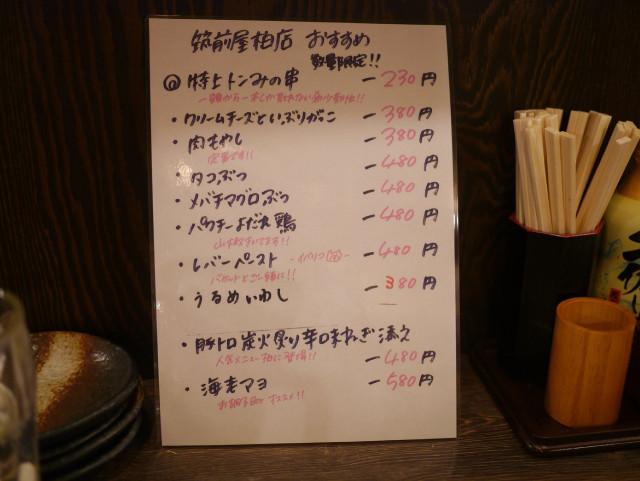 筑前屋柏店 おすすめ
数量限定!!
特上トンみの串 ー230円
クリームチーズといぶりがっこ ー380円
・肉もやし ー380円
定番です!!
・タコぶつ ー480円
・メバチマグロぶつ ー480円
・パクチーよだれ鶏 ー480円
・レバーペースト ー480円
バゲットとご一緒に!!
・うるめいわし ー380円
・豚トロ炭火炙り辛口味ねぎ添え
人気メニュー柏に登場!! ー480円
・海老マヨ ー580円